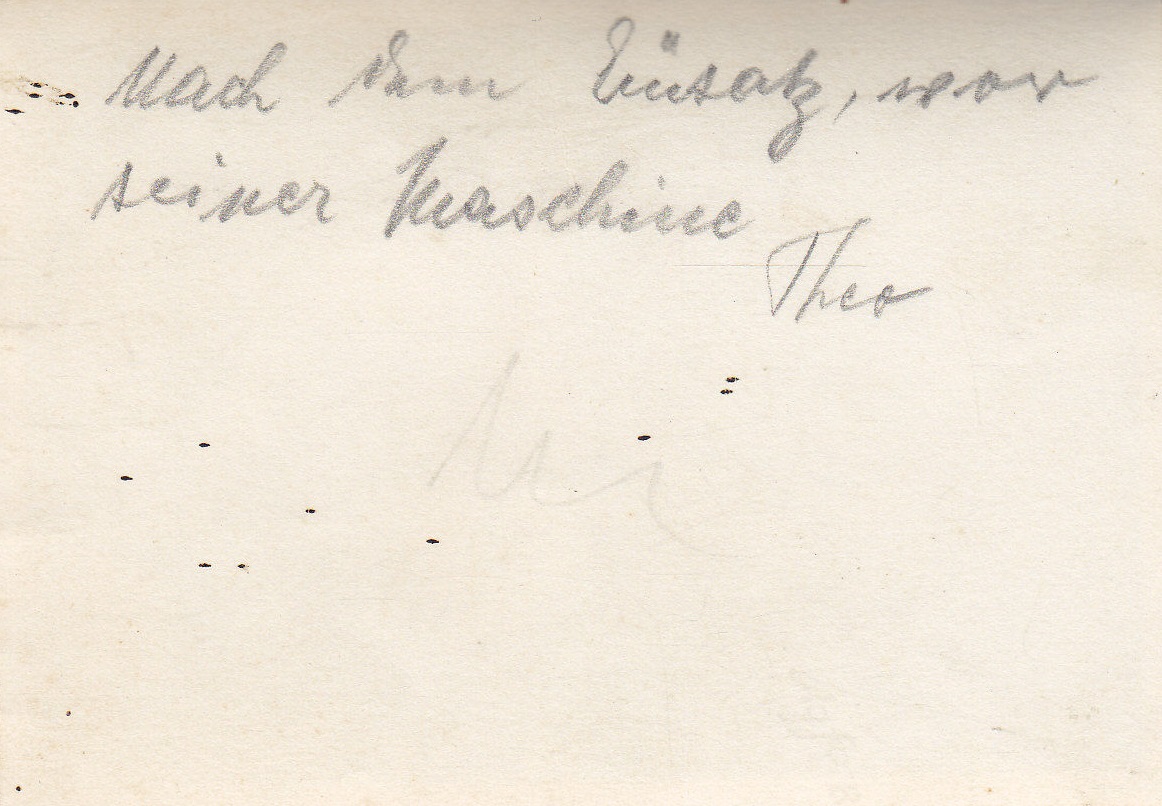 Nach dem Einsatz, vor
seiner Maschine
Theo